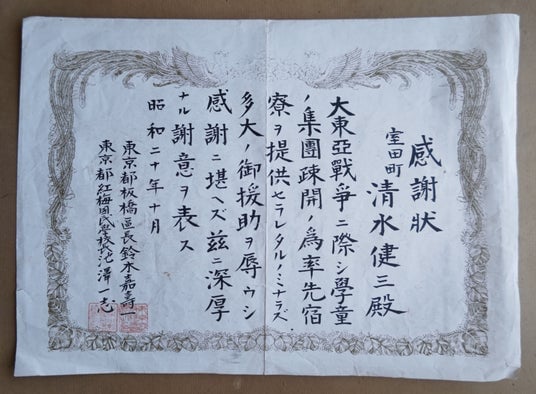 感謝狀
室田町 清水健三殿
大東亞戰爭ニ際シ學童
ノ集團疎開ノ為率先宿
寮ヲ提供セラレタルノミナラズ
多大ノ御援助ヲ辱ウシ
感謝ニ堪ヘズ茲ニ深厚
ナル謝意ヲ表ス
昭和二十年十月
東京都板橋區長鈴木嘉壽一
東京都紅梅國民學校長池澤一志